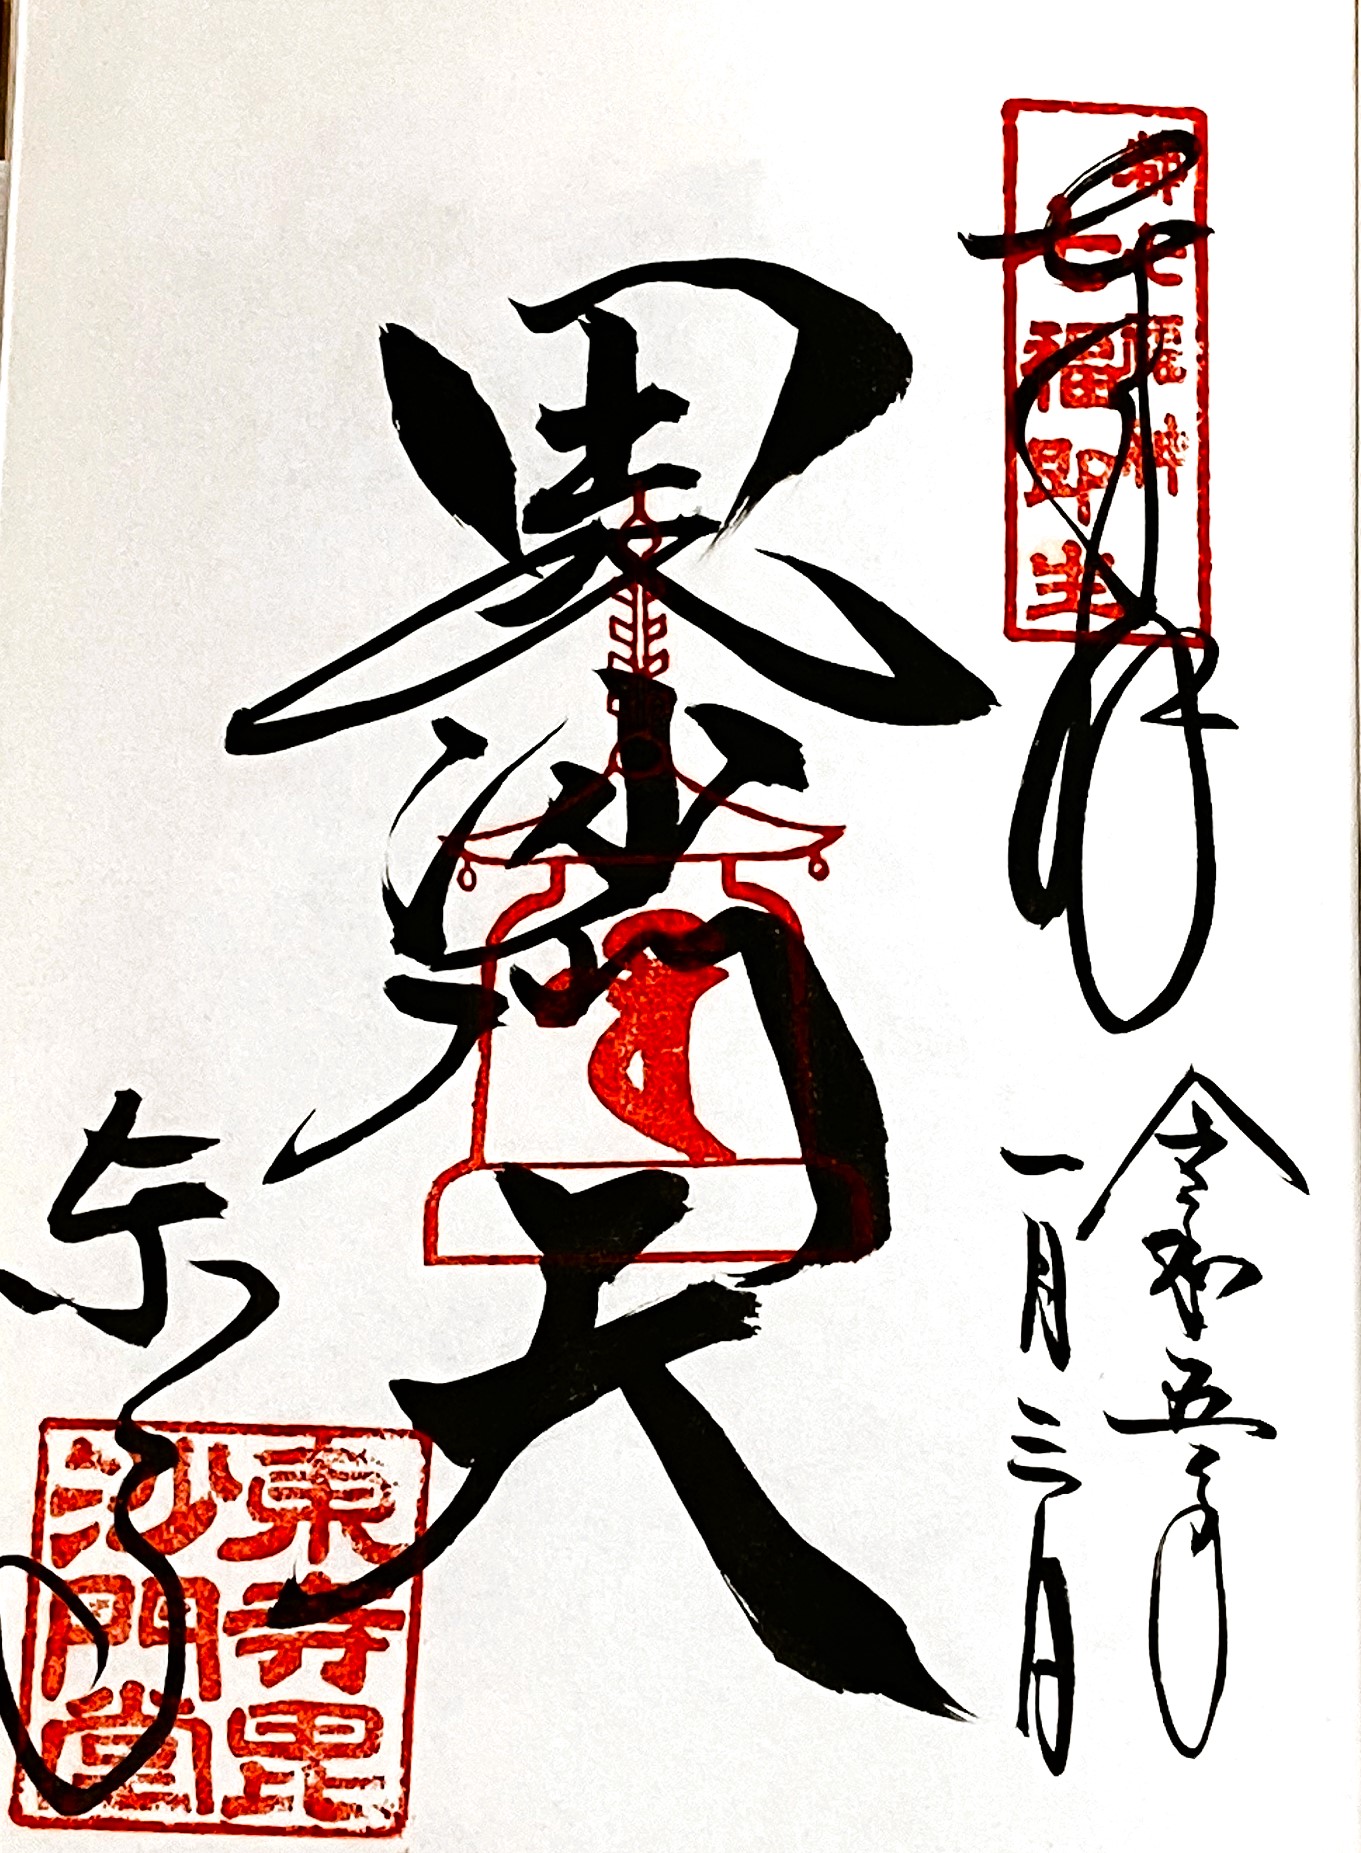 奉拝
都七福神
七福即生
令和五年
一月三日
毘沙門天
東寺
東寺毘
沙門堂